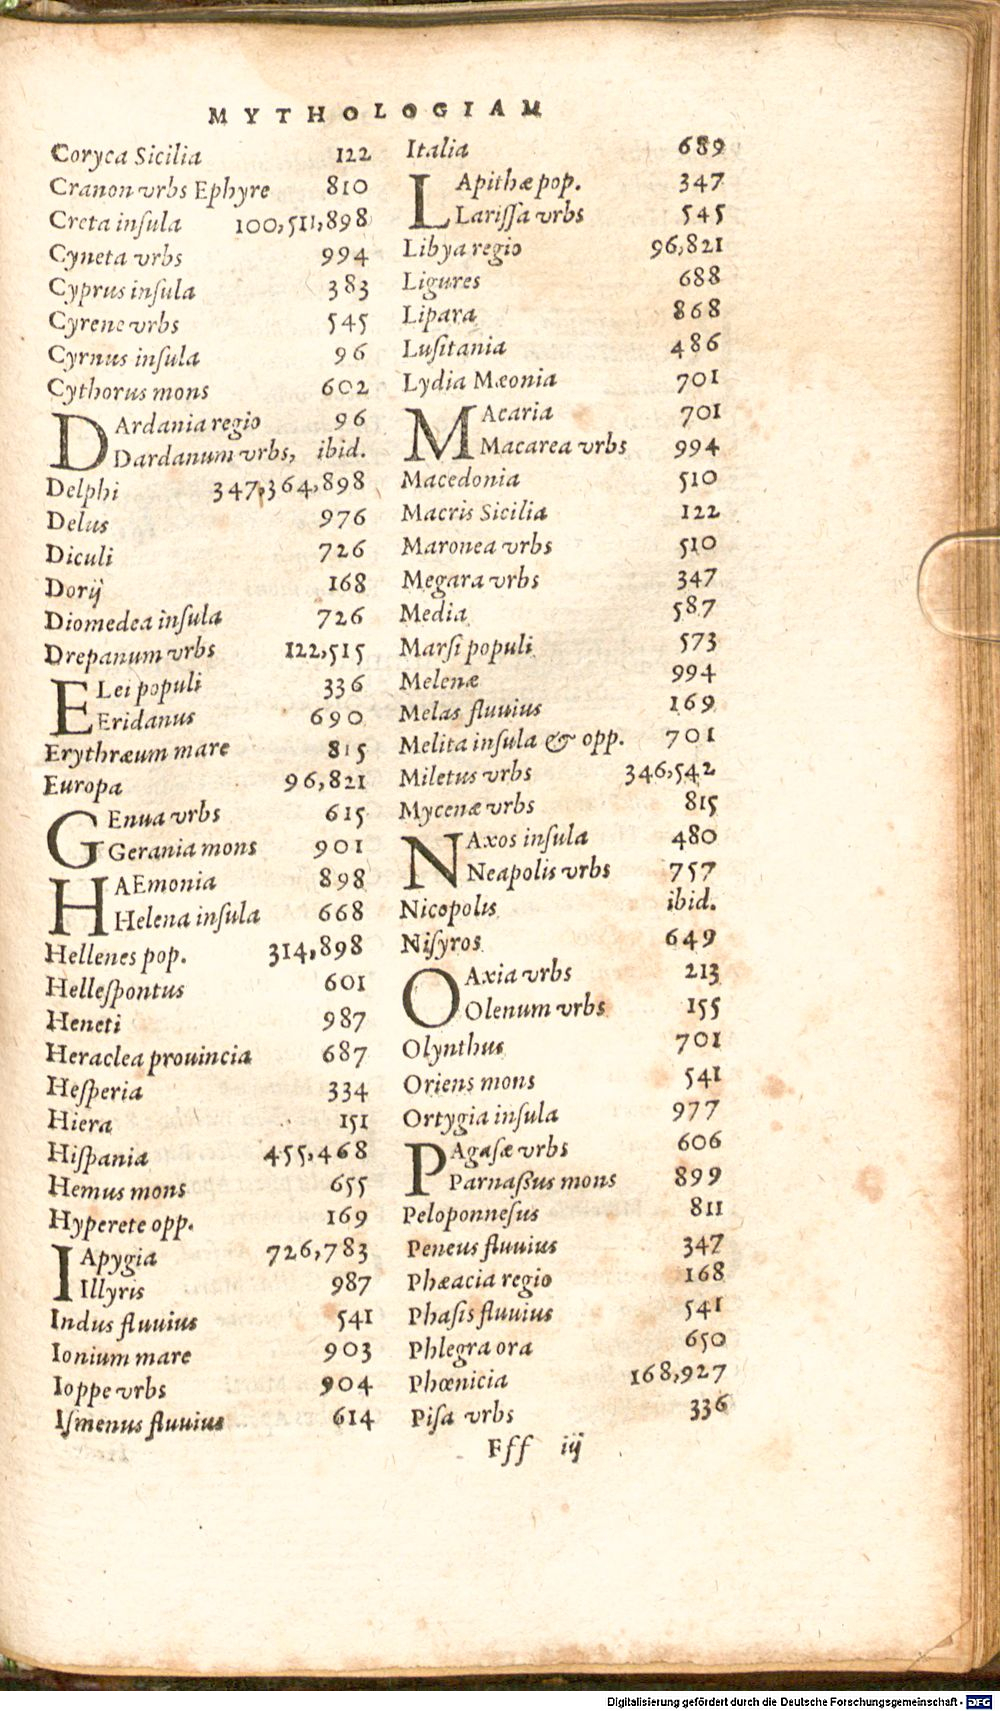 MYTHOLOGIAM
Coryca Sicilia 122
Cranon vrbs Ephyre 810
Creta inſula 100,511,898
Cyneta vrbs 994
Cyprus inſula 383
Cyrene vrbs 545
Cyrnus inſula 96
Cythorus mons 602
DArdania regio 96
Dardanum vrbs, ibid.
Delphi 347,364,898
Delus 976
Diculi 726
Dorij 168
Diomedea inſula 726
Drepanum vrbs 122,515
ELei populi 336
Eridanus 690
Erythræum mare 815
Europa 96,821
GEnua vrbs 615
Gerania mons 901
HAEmonia 898
Helena inſula 668
Hellenes pop. 314,898
Helleſpontus 601
Heneti 987
Heraclea prouincia 687
Heſperia 334
Hiera 151
Hiſpania 455,468
Hemus mons 655
Hyperete opp. 169
IApygia 726,783
Illyris 987
Indus fluuius 541
Ionium mare 903
Ioppe vrbs 904
Iſmenus fluuius 614
Italia 689
LApithæ pop. 347
Lariſſa vrbs 545
Libya regio 96,821
Ligures 688
Lipara 868
Luſitania 486
Lydia Mæonia 701
MAcaria 701
Macarea vrbs 994
Macedonia 510
Macris Sicilia 122
Maronea vrbs 510
Megara vrbs 347
Media 587
Marſi populi 573
Melenæ 994
Melas fluuius 169
Melita inſula & opp. 701
Miletus vrbs 346,542
Mycenæ vrbs 815
NAxos inſula 480
Neapolis vrbs 757
Nicopolis ibid.
Niſyros 649
OAxia vrbs 213
Olenum vrbs 155
Olynthus 701
Oriens mons 541
Ortygia inſula 977
PAgaſæ vrbs 606
Parnaßus mons 899
Peloponneſus 811
Peneus fluuius 347
Phæacia regio 168
Phaſis fluuius 541
Phlegra ora 650
Phœnicia 168,927
Piſa vrbs 336
Fff iij
Digitalisierung gefördert durch die Deutsche Forschungsgemeinschaft - DFG